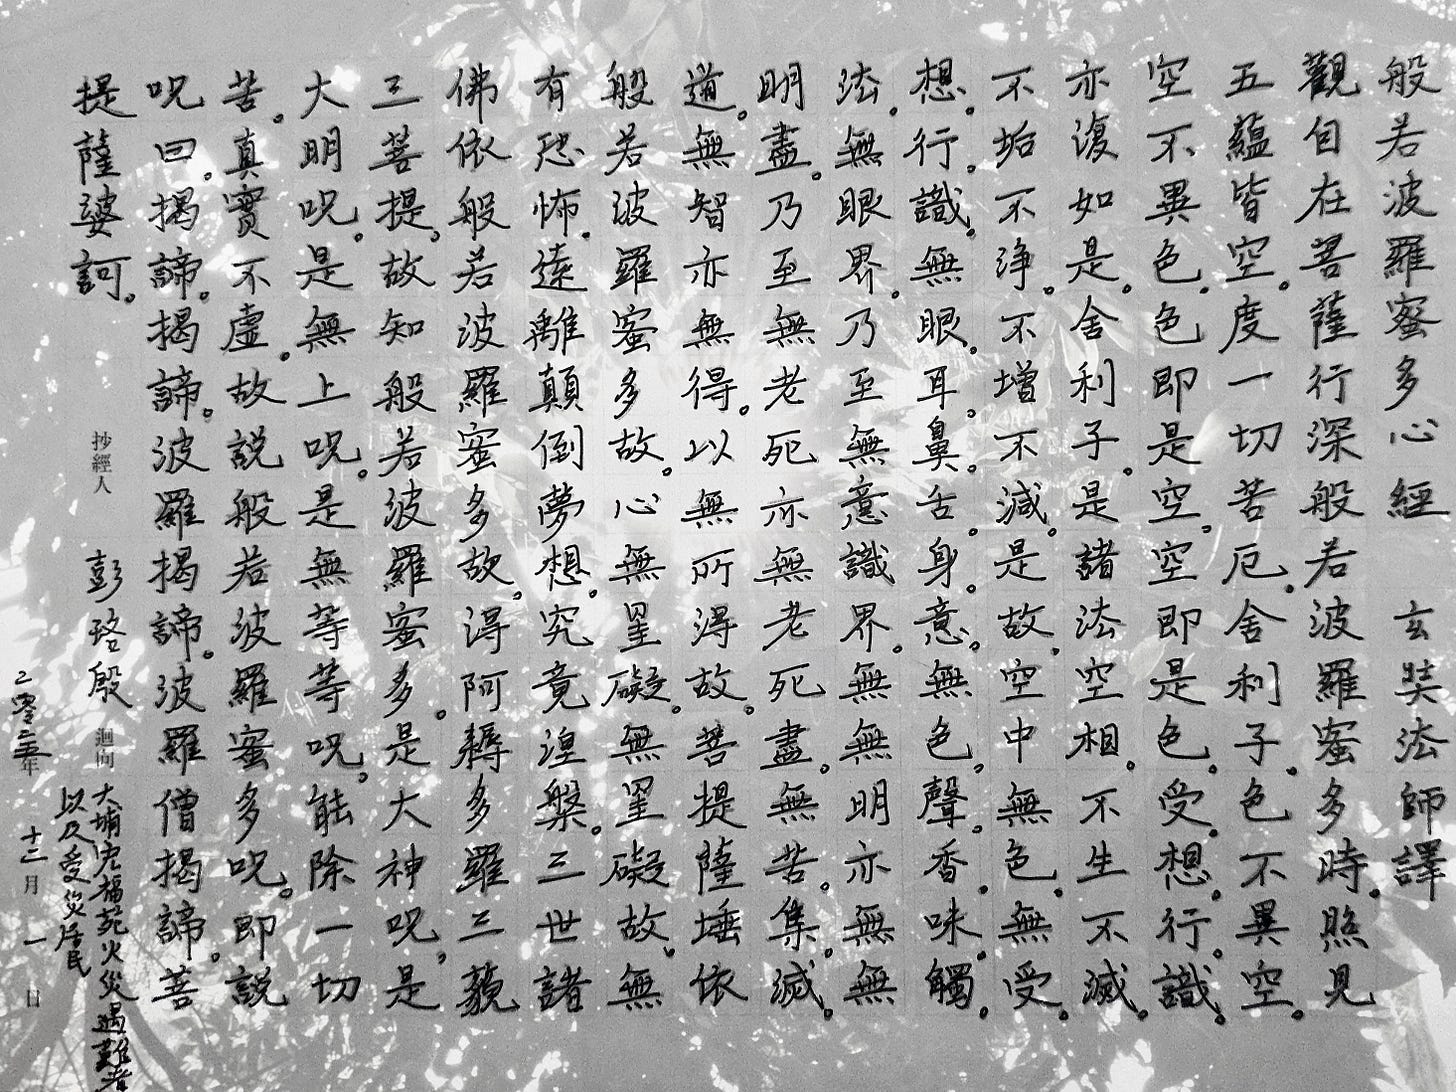 般若波羅蜜多心經 玄奘法師譯
觀自在菩薩行深般若波羅蜜多時。照見
五蘊皆空。度一切苦厄。舍利子。色不異空。
空不異色。色即是空。空即是色。受。想。行。識。
亦復如是。舍利子。是諸法空相。不生不滅。
不垢不淨。不增不減。是故。空中無色。無受。
想。行。識。無眼。耳。鼻。舌。身。意。無色。聲。香。味。觸。
法。無眼界。乃至無意識界。無無明亦無無
明盡。乃至無老死亦無老死盡。無苦。集。滅。
道。無智亦無得。以無所得故。菩提薩埵依
般若波羅蜜多故。心無罣礙。無罣礙故。無
有恐怖。遠離顛倒夢想。究竟涅槃。三世諸
佛依般若波羅蜜多故。得阿耨多羅三藐
三菩提。故知般若波羅蜜多。是大神呪。是
大明呪。是無上呪。是無等等呪。能除一切
苦。真實不虛。故說般若波羅蜜多呪。即說
呪曰。揭諦。揭諦。波羅揭諦。波羅僧揭諦。菩
提薩婆訶。
抄經人 彭珞殷 迴向 大埔宏福苑火災遇難者
以及受災居民
二零二五年 十二月 一 日